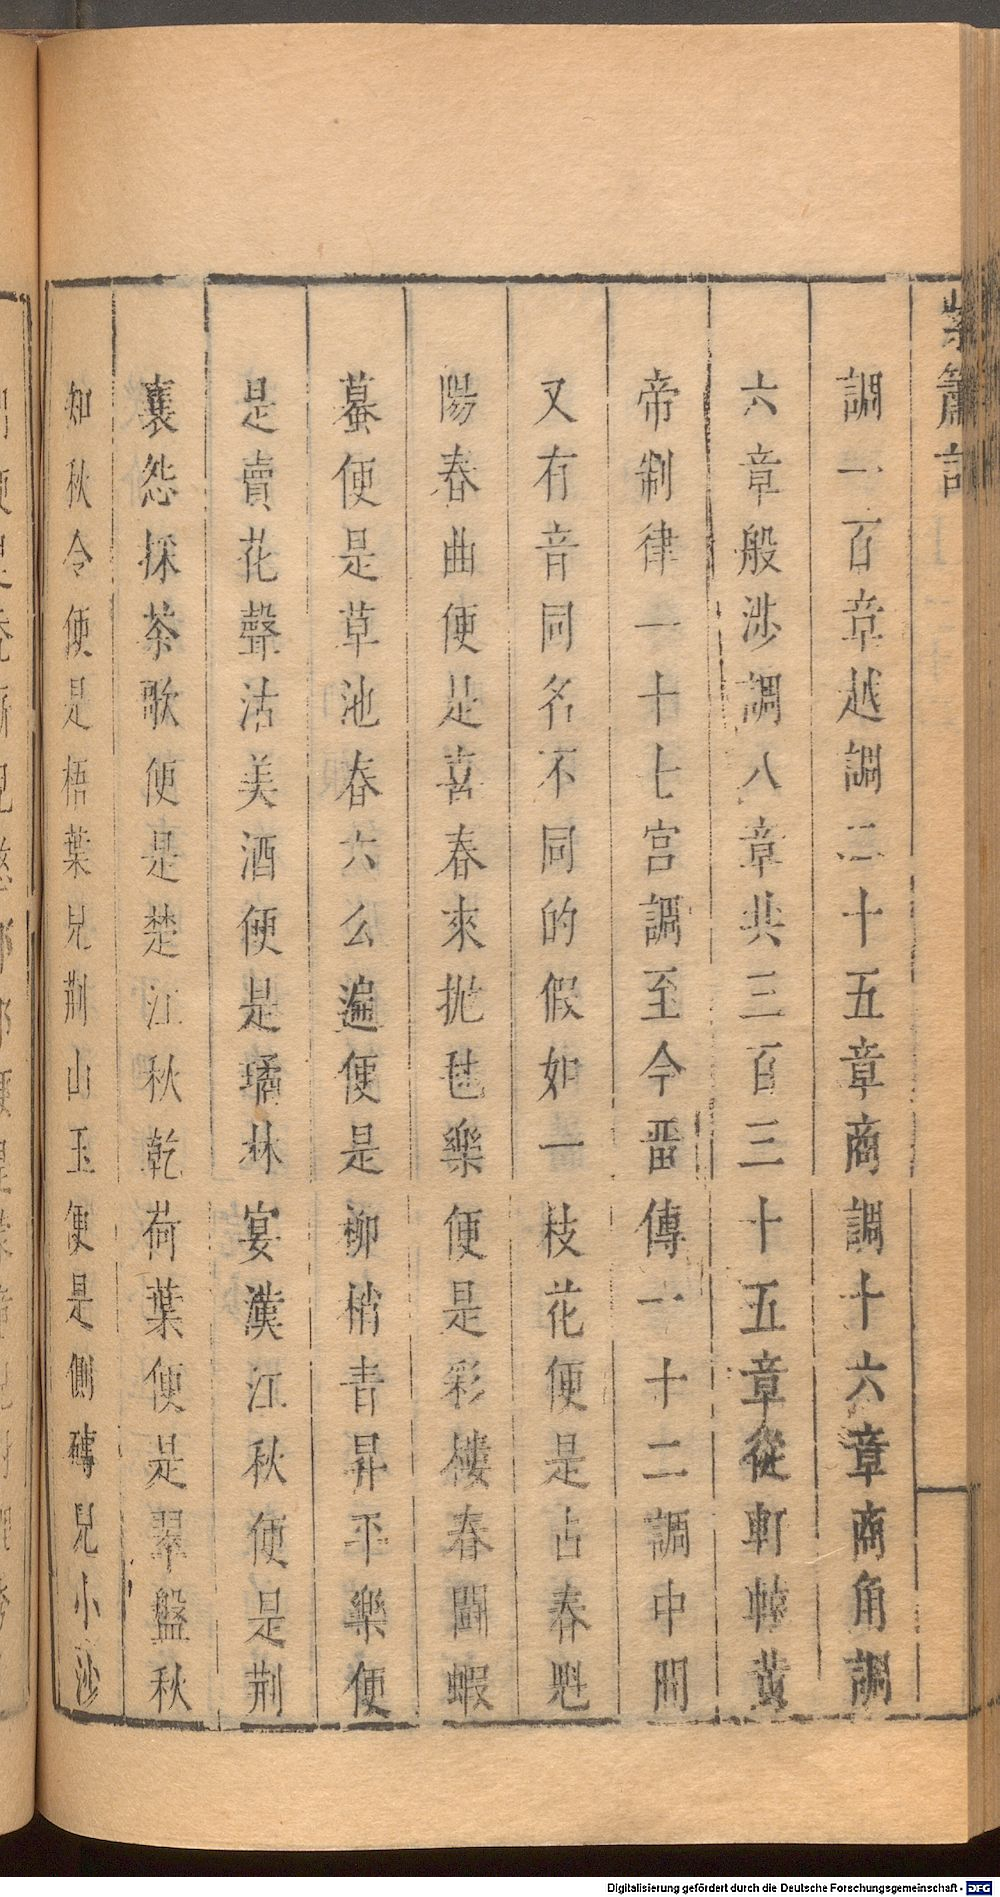 紫簫記
調一百章越調二十五章商調十六章商角調
六章般涉調八章共三百三十五章從軒轅黃
帝制律一十七宮調至今畱傳一十二調中間
又有音同名不同的假如一枝花便是占春魁
陽春曲便是喜春來拋毬樂便是彩樓春鬬蝦
蟇便是草池春六么遍便是柳梢青昇平樂便
是賣花聲沽美酒便是璚林宴漢江秋便是荆
襄怨採茶歌便是楚江秋乾荷葉便是翠盤秋
知秋令便是梧葉兒荆山玉便是側磚兒小沙
Digitalisierung gefördert durch die Deutsche Forschungsgemeinschaft - DFG